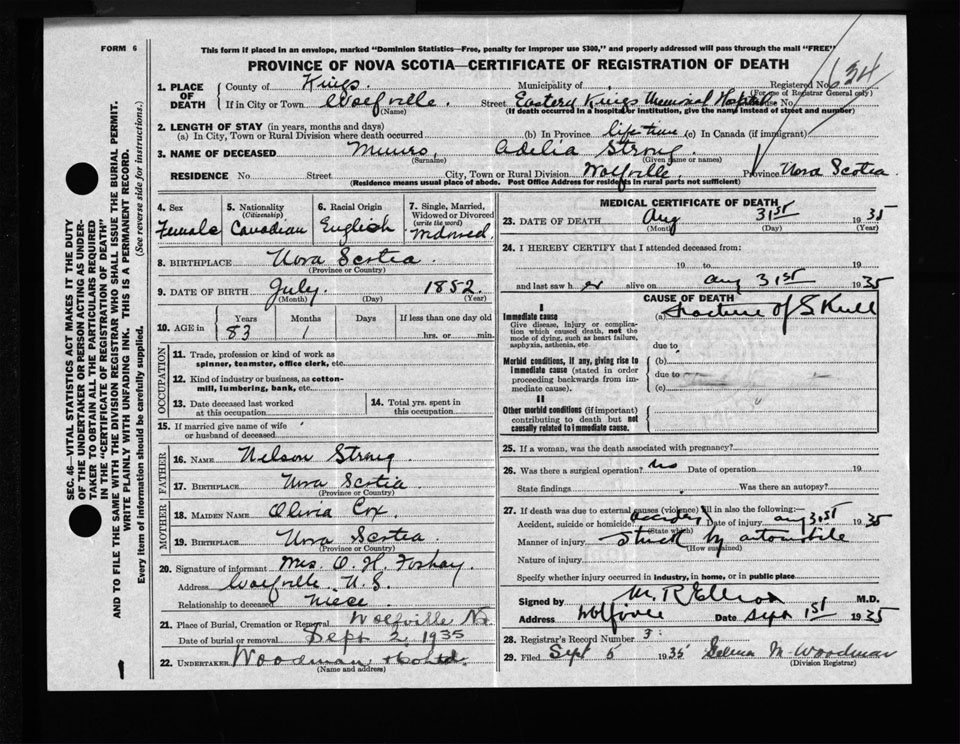 FORM 6
This form if placed in an envelope, marked "Dominion Statistics—Free, penalty for improper use $300," and properly addressed will pass through the mail "FREE"
PROVINCE OF NOVA SCOTIA—CERTIFICATE OF REGISTRATION OF DEATH
SEC. 46—VITAL STATISTICS ACT MAKES IT THE DUTY
OF THE UNDERTAKER OR PERSON ACTING AS UNDER-
TAKER TO OBTAIN ALL THE PARTICULARS REQUIRED
IN THE "CERTIFICATE OF REGISTRATION OF DEATH"
AND TO FILE THE SAME WITH THE DIVISION REGISTRAR WHO SHALL ISSUE THE BURIAL PERMIT.
WRITE PLAINLY WITH UNFADING INK. THIS IS A PERMANENT RECORD.
Every item of information should be carefully supplied. (See reverse side for instructions.)
1. PLACE OF DEATH
County of Kings. Municipality of Registered No. 634
(For use of Registrar General only)
If in City or Town Wolfville. Street Eastern Kings Memorial Hospital House No.
(Name) (If death occurred in a hospital or institution, give the name instead of street and number)
2. LENGTH OF STAY (in years, months and days)
(a) In City, Town or Rural Division where death occurred (b) In Province life time (c) In Canada (if immigrant)
3. NAME OF DECEASED Munro, Adelia Strong
(Surname) (Given name or names)
RESIDENCE No. Street City, Town or Rural Division Wolfville, Province Nova Scotia
(Residence means usual place of abode. Post Office Address for residents in rural parts not sufficient)
4. Sex
Female
5. Nationality
(Citizenship)
Canadian
6. Racial Origin
English
7. Single, Married,
Widowed or Divorced
(write the word)
Widowed.
8. BIRTHPLACE Nova Scotia.
(Province or Country)
9. DATE OF BIRTH July. 1852
(Month) (Day) (Year)
10. AGE in Years Months Days If less than one day old
83 1 hrs. or min.
OCCUPATION
11. Trade, profession or kind of work as
spinner, teamster, office clerk, etc.
12. Kind of industry or business, as cotton-
mill, lumbering, bank, etc.
13. Date deceased last worked
at this occupation
14. Total yrs. spent in
this occupation
15. If married give name of wife
or husband of deceased
FATHER
16. NAME Nelson Strong.
17. BIRTHPLACE Nova Scotia
(Province or Country)
MOTHER
18. MAIDEN NAME Olivia Cox.
19. BIRTHPLACE Nova Scotia.
(Province or Country)
20. Signature of informant Mrs. O. H. Foshay.
Address Wolfville N.S.
Relationship to deceased Niece.
21. Place of Burial, Cremation or Removal Wolfville N.S.
Date of burial or removal Sept 2, 1935
22. UNDERTAKER Woodman
(Name and address)
MEDICAL CERTIFICATE OF DEATH
23. DATE OF DEATH Aug 31st 1935
(Month) (Day) (Year)
24. I HEREBY CERTIFY that I attended deceased from:
19 to 19
and last saw her alive on Aug 31st 1935
CAUSE OF DEATH
I
Immediate cause
Give disease, injury or complica-
tion which caused death, not the
mode of dying, such as heart failure,
asphyxia, asthenia, etc.
(a) Fracture of Skull
due to
Morbid conditions, if any, giving rise to
immediate cause (stated in order
proceeding backwards from im-
mediate cause).
(b)
due to
(c)
II
Other morbid conditions (if important)
contributing to death but not
causally related to immediate cause.
25. If a woman, was the death associated with pregnancy?
26. Was there a surgical operation? No Date of operation 19
State findings Was there an autopsy?
27. If death was due to external causes (violence) fill in also the following:—
Accident, suicide or homicide Accident Date of injury Aug 31st 1935
(State which)
Manner of injury Struck by automobile
(How sustained)
Nature of injury
Specify whether injury occurred in industry, in home, or in public place
Signed by M. R. Elliott M.D.
Address Wolfville Date Sept 1st 1935
28. Registrar's Record Number 3.
29. Filed Sept 5 1935 M. Woodman
(Division Registrar)